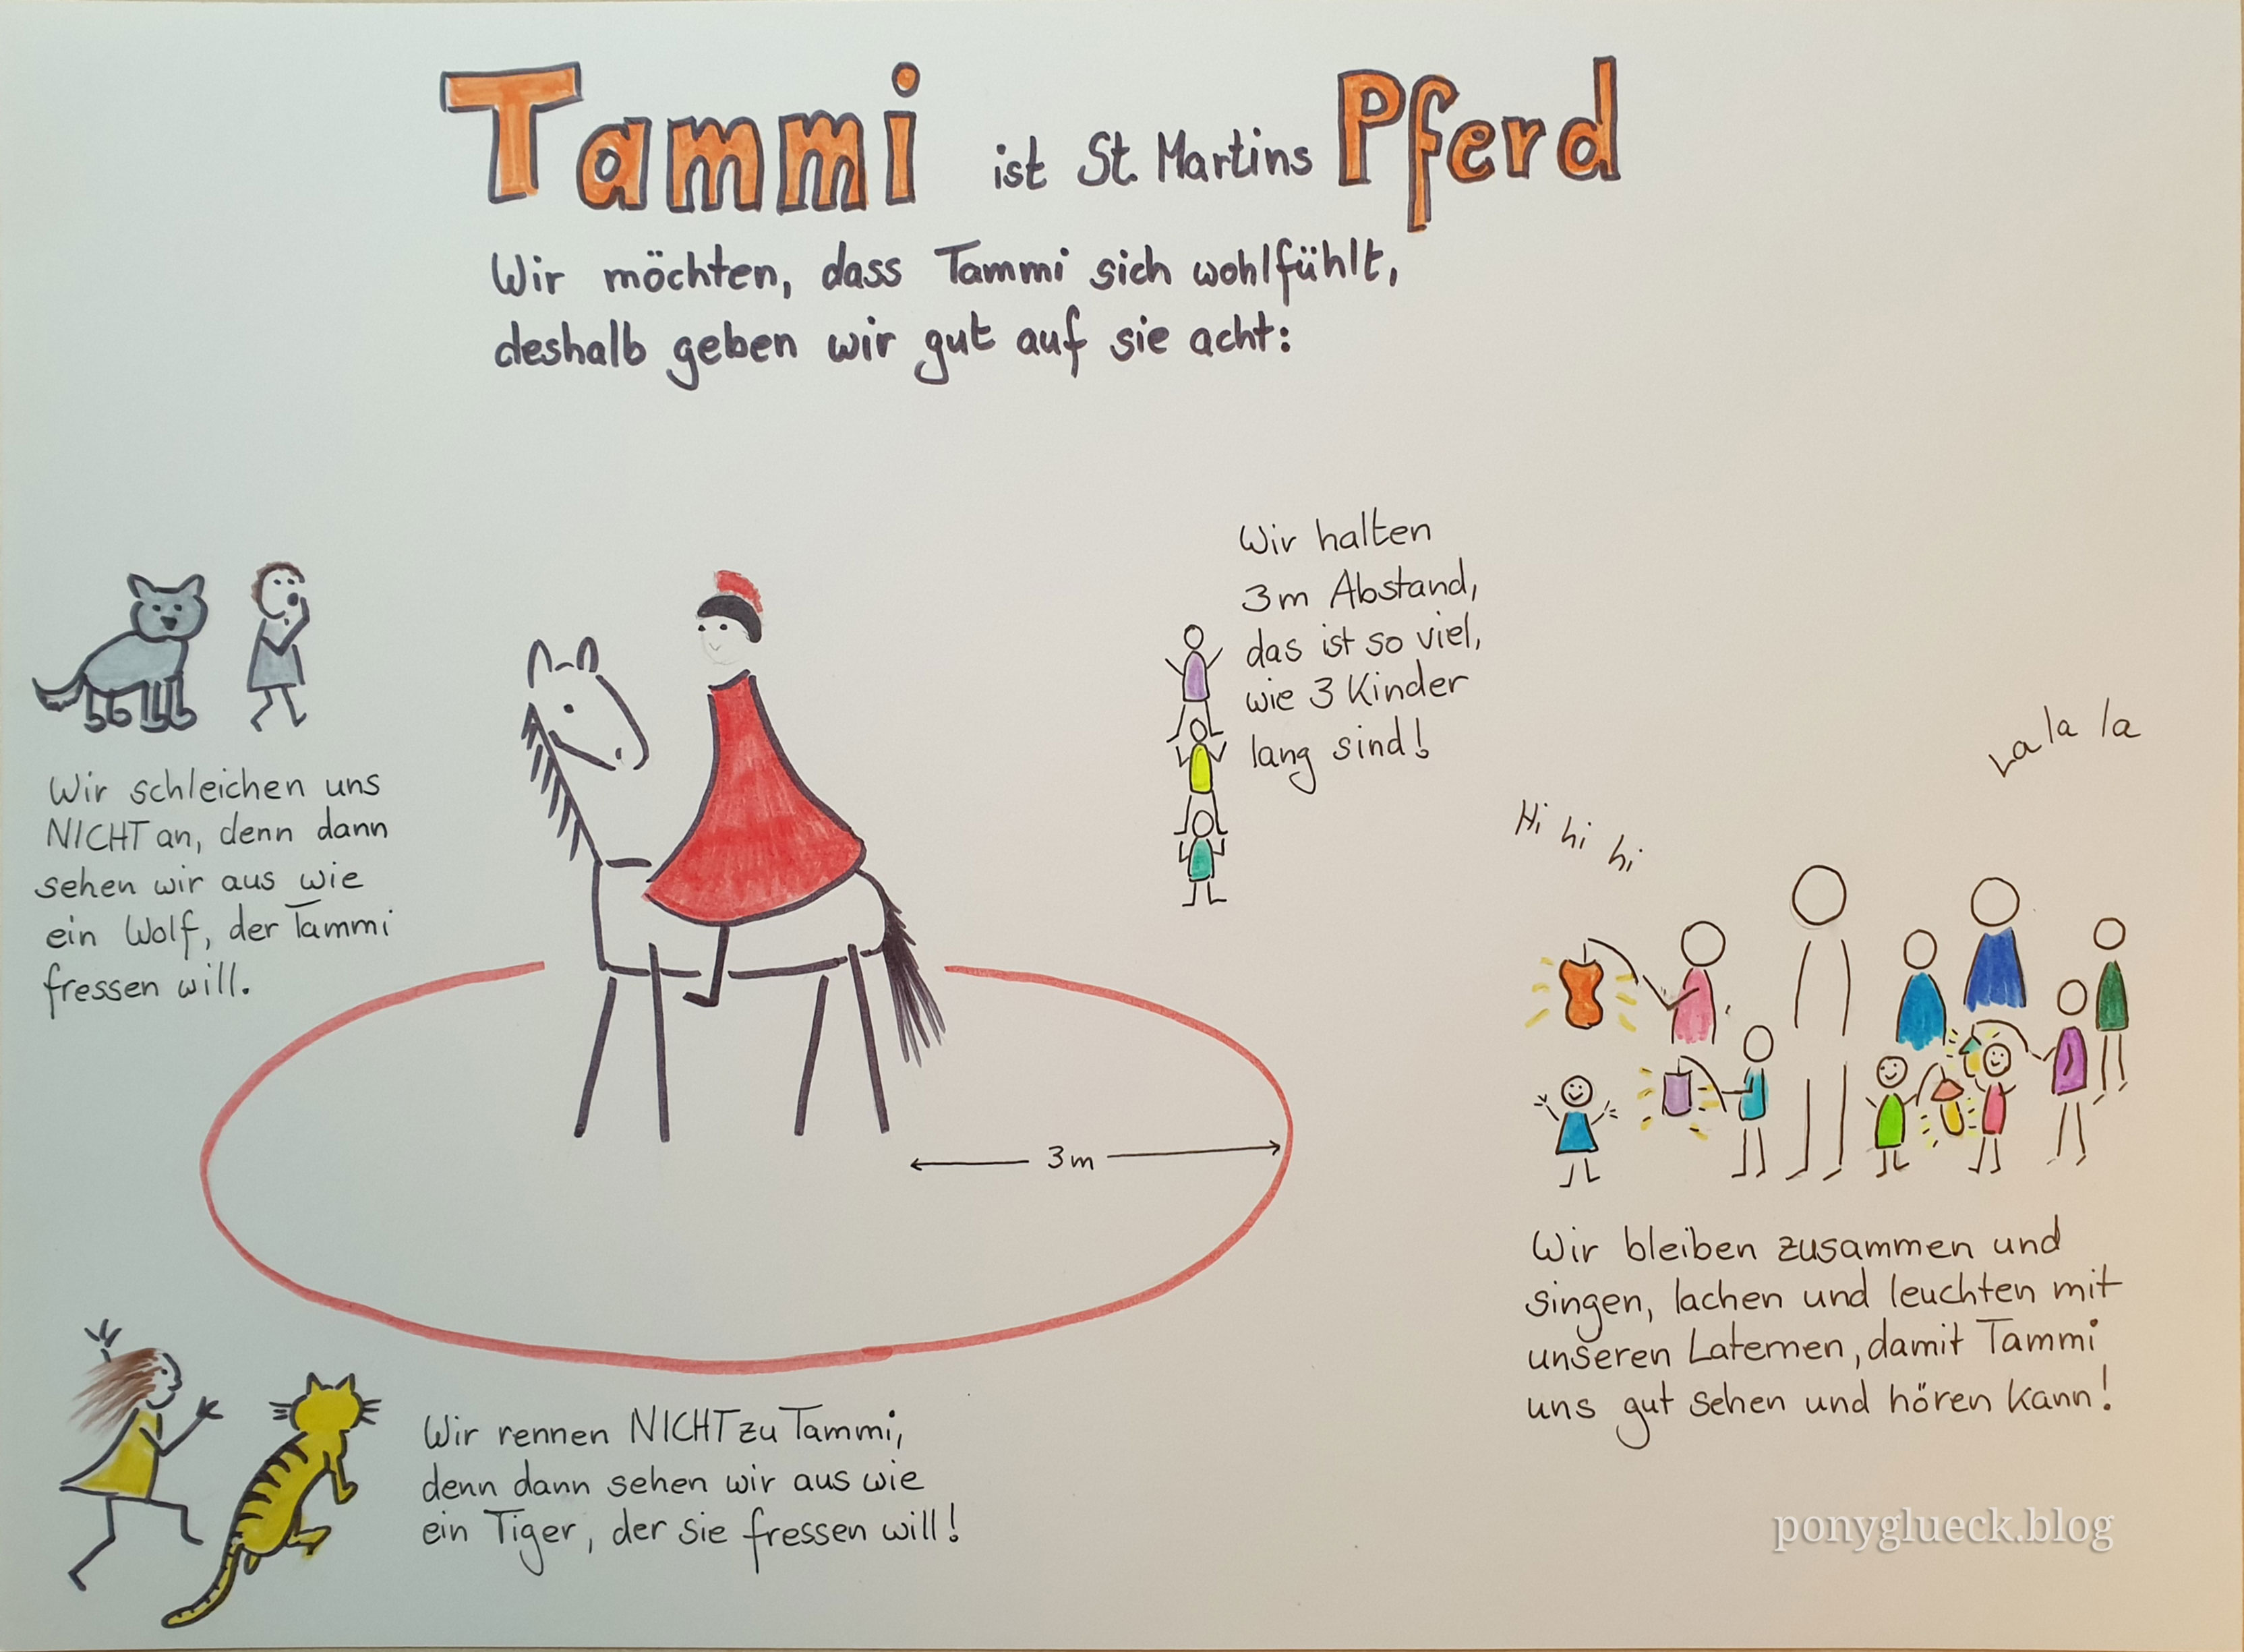 Tammi ist St. Martins Pferd
Wir möchten, dass Tammi sich wohlfühlt,
deshalb geben wir gut auf sie acht:
Wir schleichen uns
NICHT an, denn dann
sehen wir aus wie
ein Wolf, der Tammi
fressen will.
Wir halten
3m Abstand,
das ist so viel,
wie 3 Kinder
lang sind!
3m
Hi hi hi
La la la
Wir bleiben zusammen und
singen, lachen und leuchten mit
unseren Laternen, damit Tammi
uns gut sehen und hören kann!
Wir rennen NICHT zu Tammi,
denn dann sehen wir aus wie
ein Tiger, der sie fressen will!
ponyglueck.blog